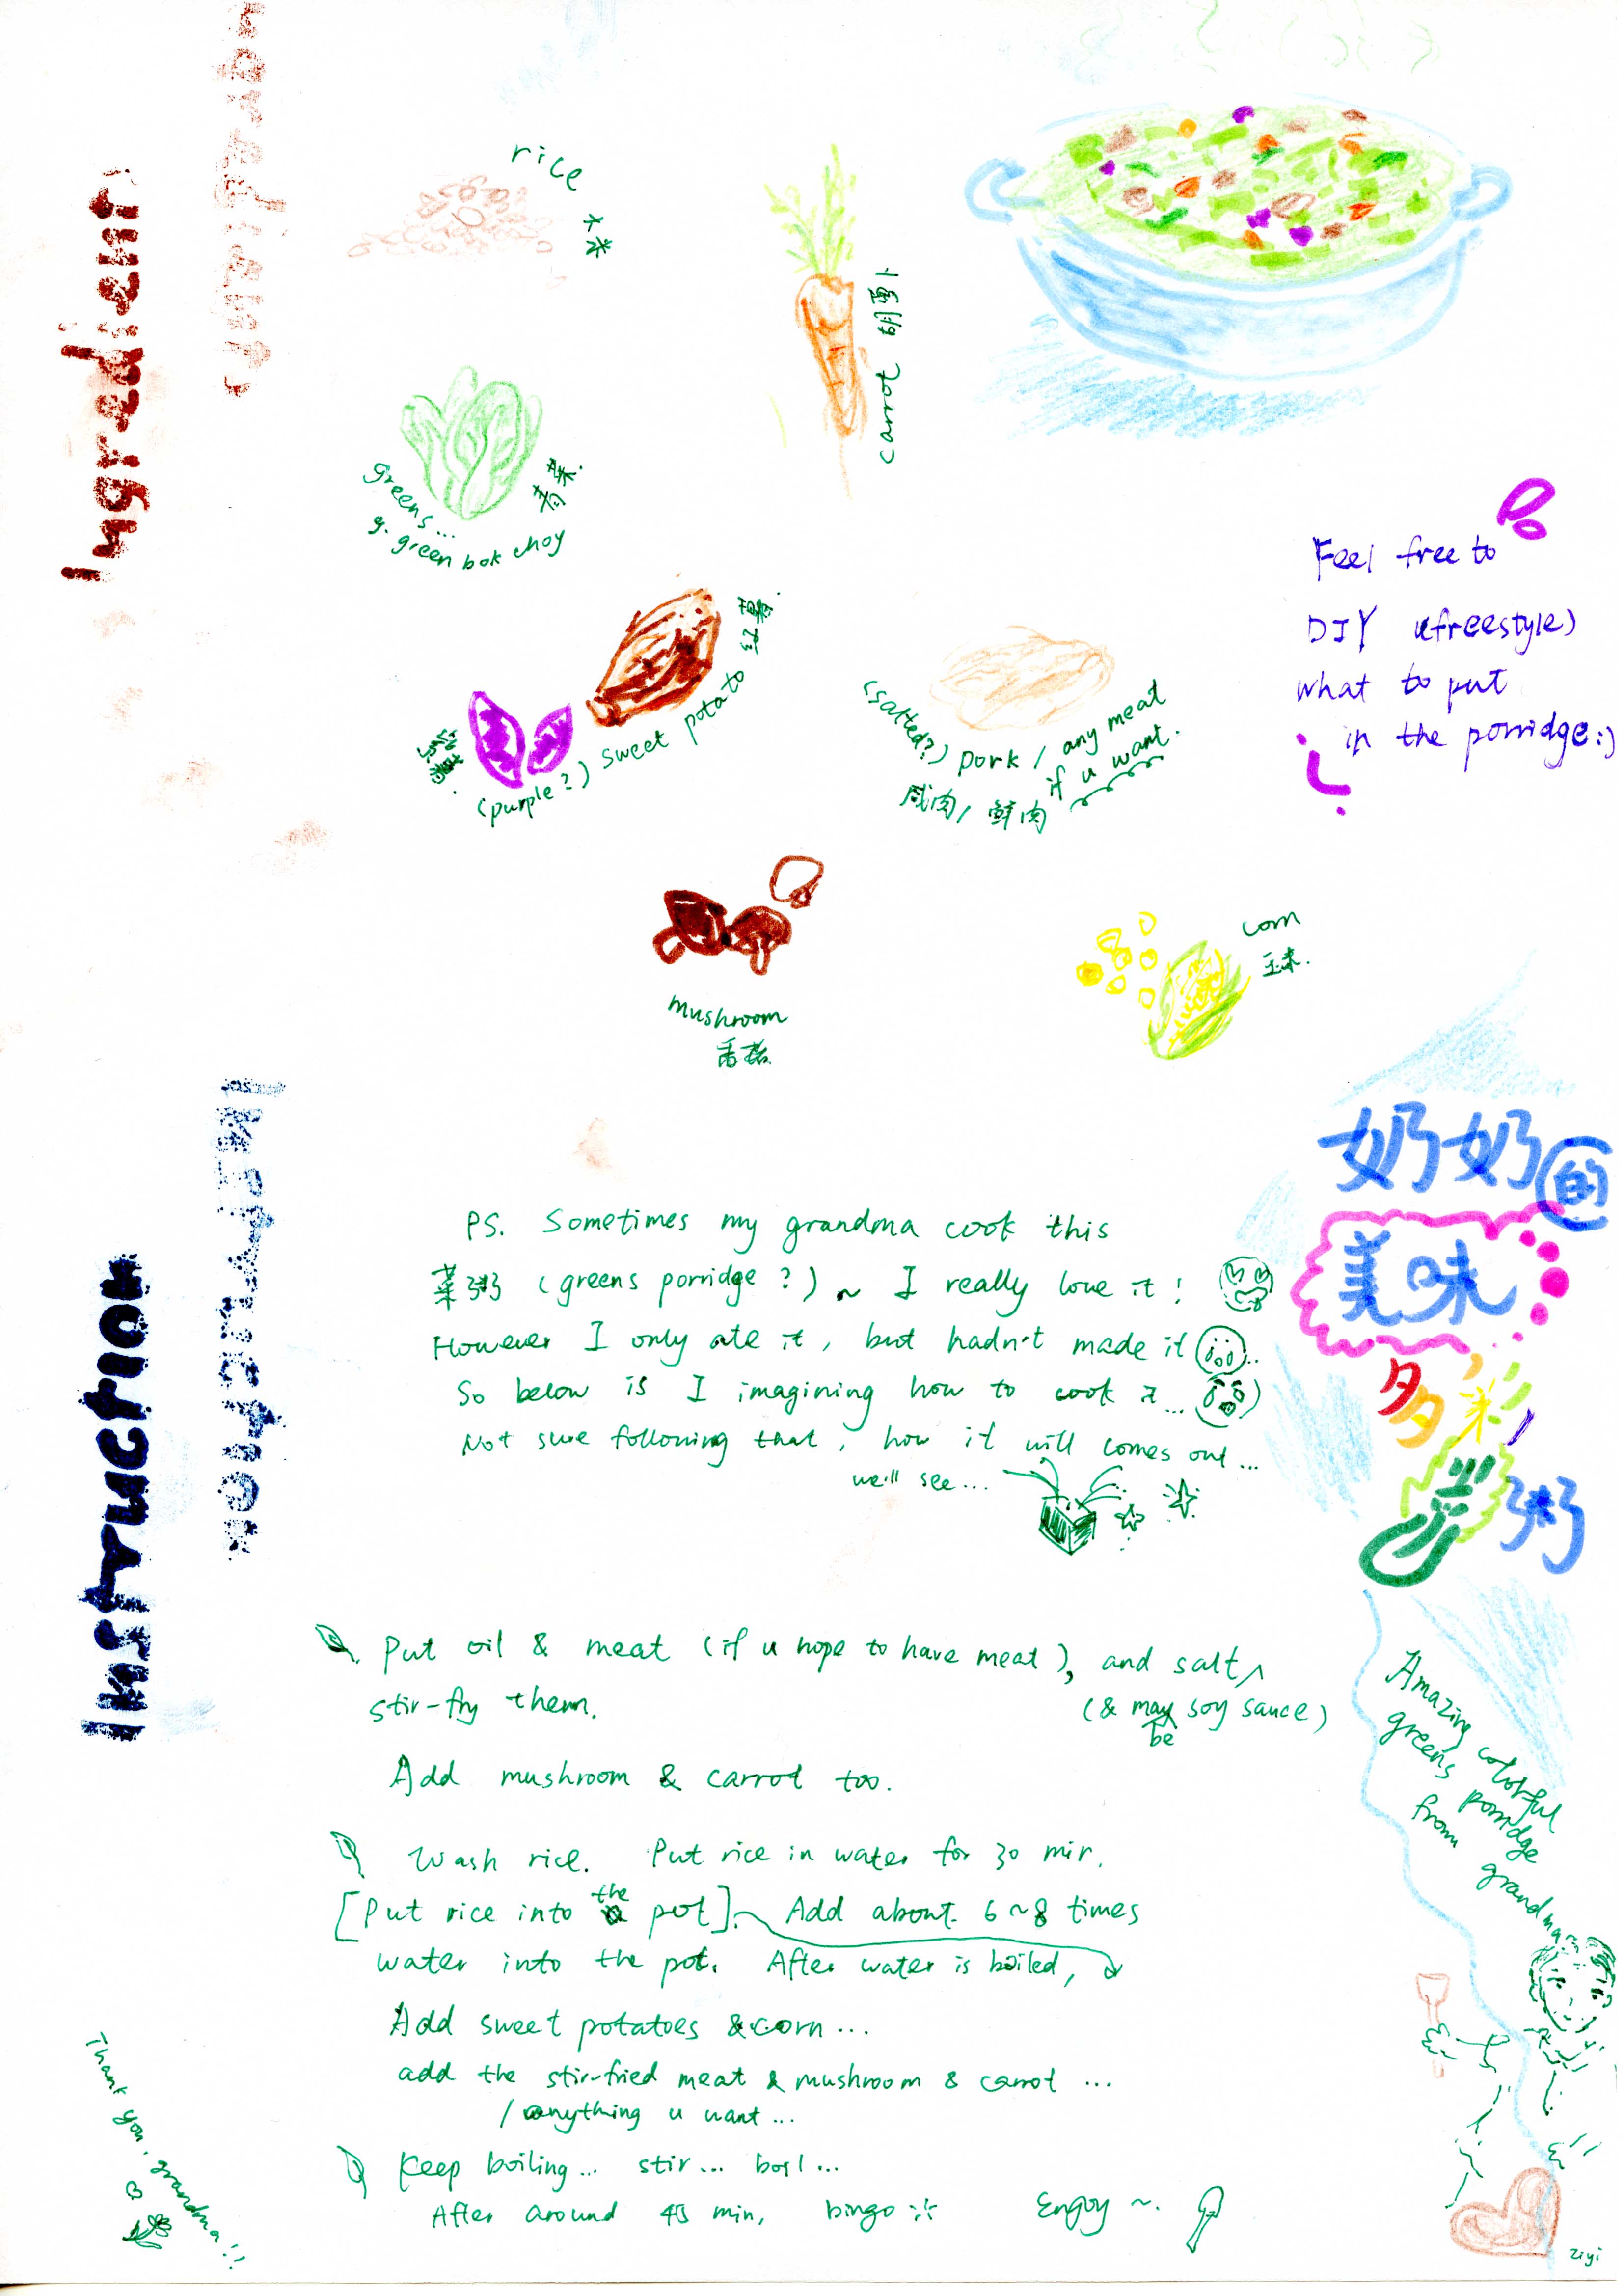 Ingredient
Ingredient
rice
大米
carrot 胡萝卜
greens...
g. green bok choy
青菜.
(purple?) sweet potato
(salted?) pork / any meat
if u want.
咸肉/ 鲜肉
Feel free to
DIY (freestyle)
what to put
in the porridge:)
mushroom
香菇
corn
玉米.
Instruction
Instruction
奶奶的
美味
多彩
菜粥
Amazing colorful
greens porridge
from grandma
PS. Sometimes my grandma cook this
菜粥 (greens porridge?) ~ I really love it!
However I only ate it, but hadn't made it
So below is I imagining how to cook it...
Not sure following that, how it will comes out...
we'll see...
Put oil & meat (if u hope to have meat), and salt
(& maybe soy sauce)
stir-fry them.
Add mushroom & carrot too.
Wash rice. Put rice in water for 30 min.
[Put rice into the pot]. Add about 6~8 times
water into the pot. After water is boiled,
Add sweet potatoes & corn...
add the stir-fried meat & mushroom & carrot ...
/ anything u want...
Keep boiling... stir... boil...
After around 45 min, bingo
Enjoy ~.
Thank you, grandma!!
Ziyi